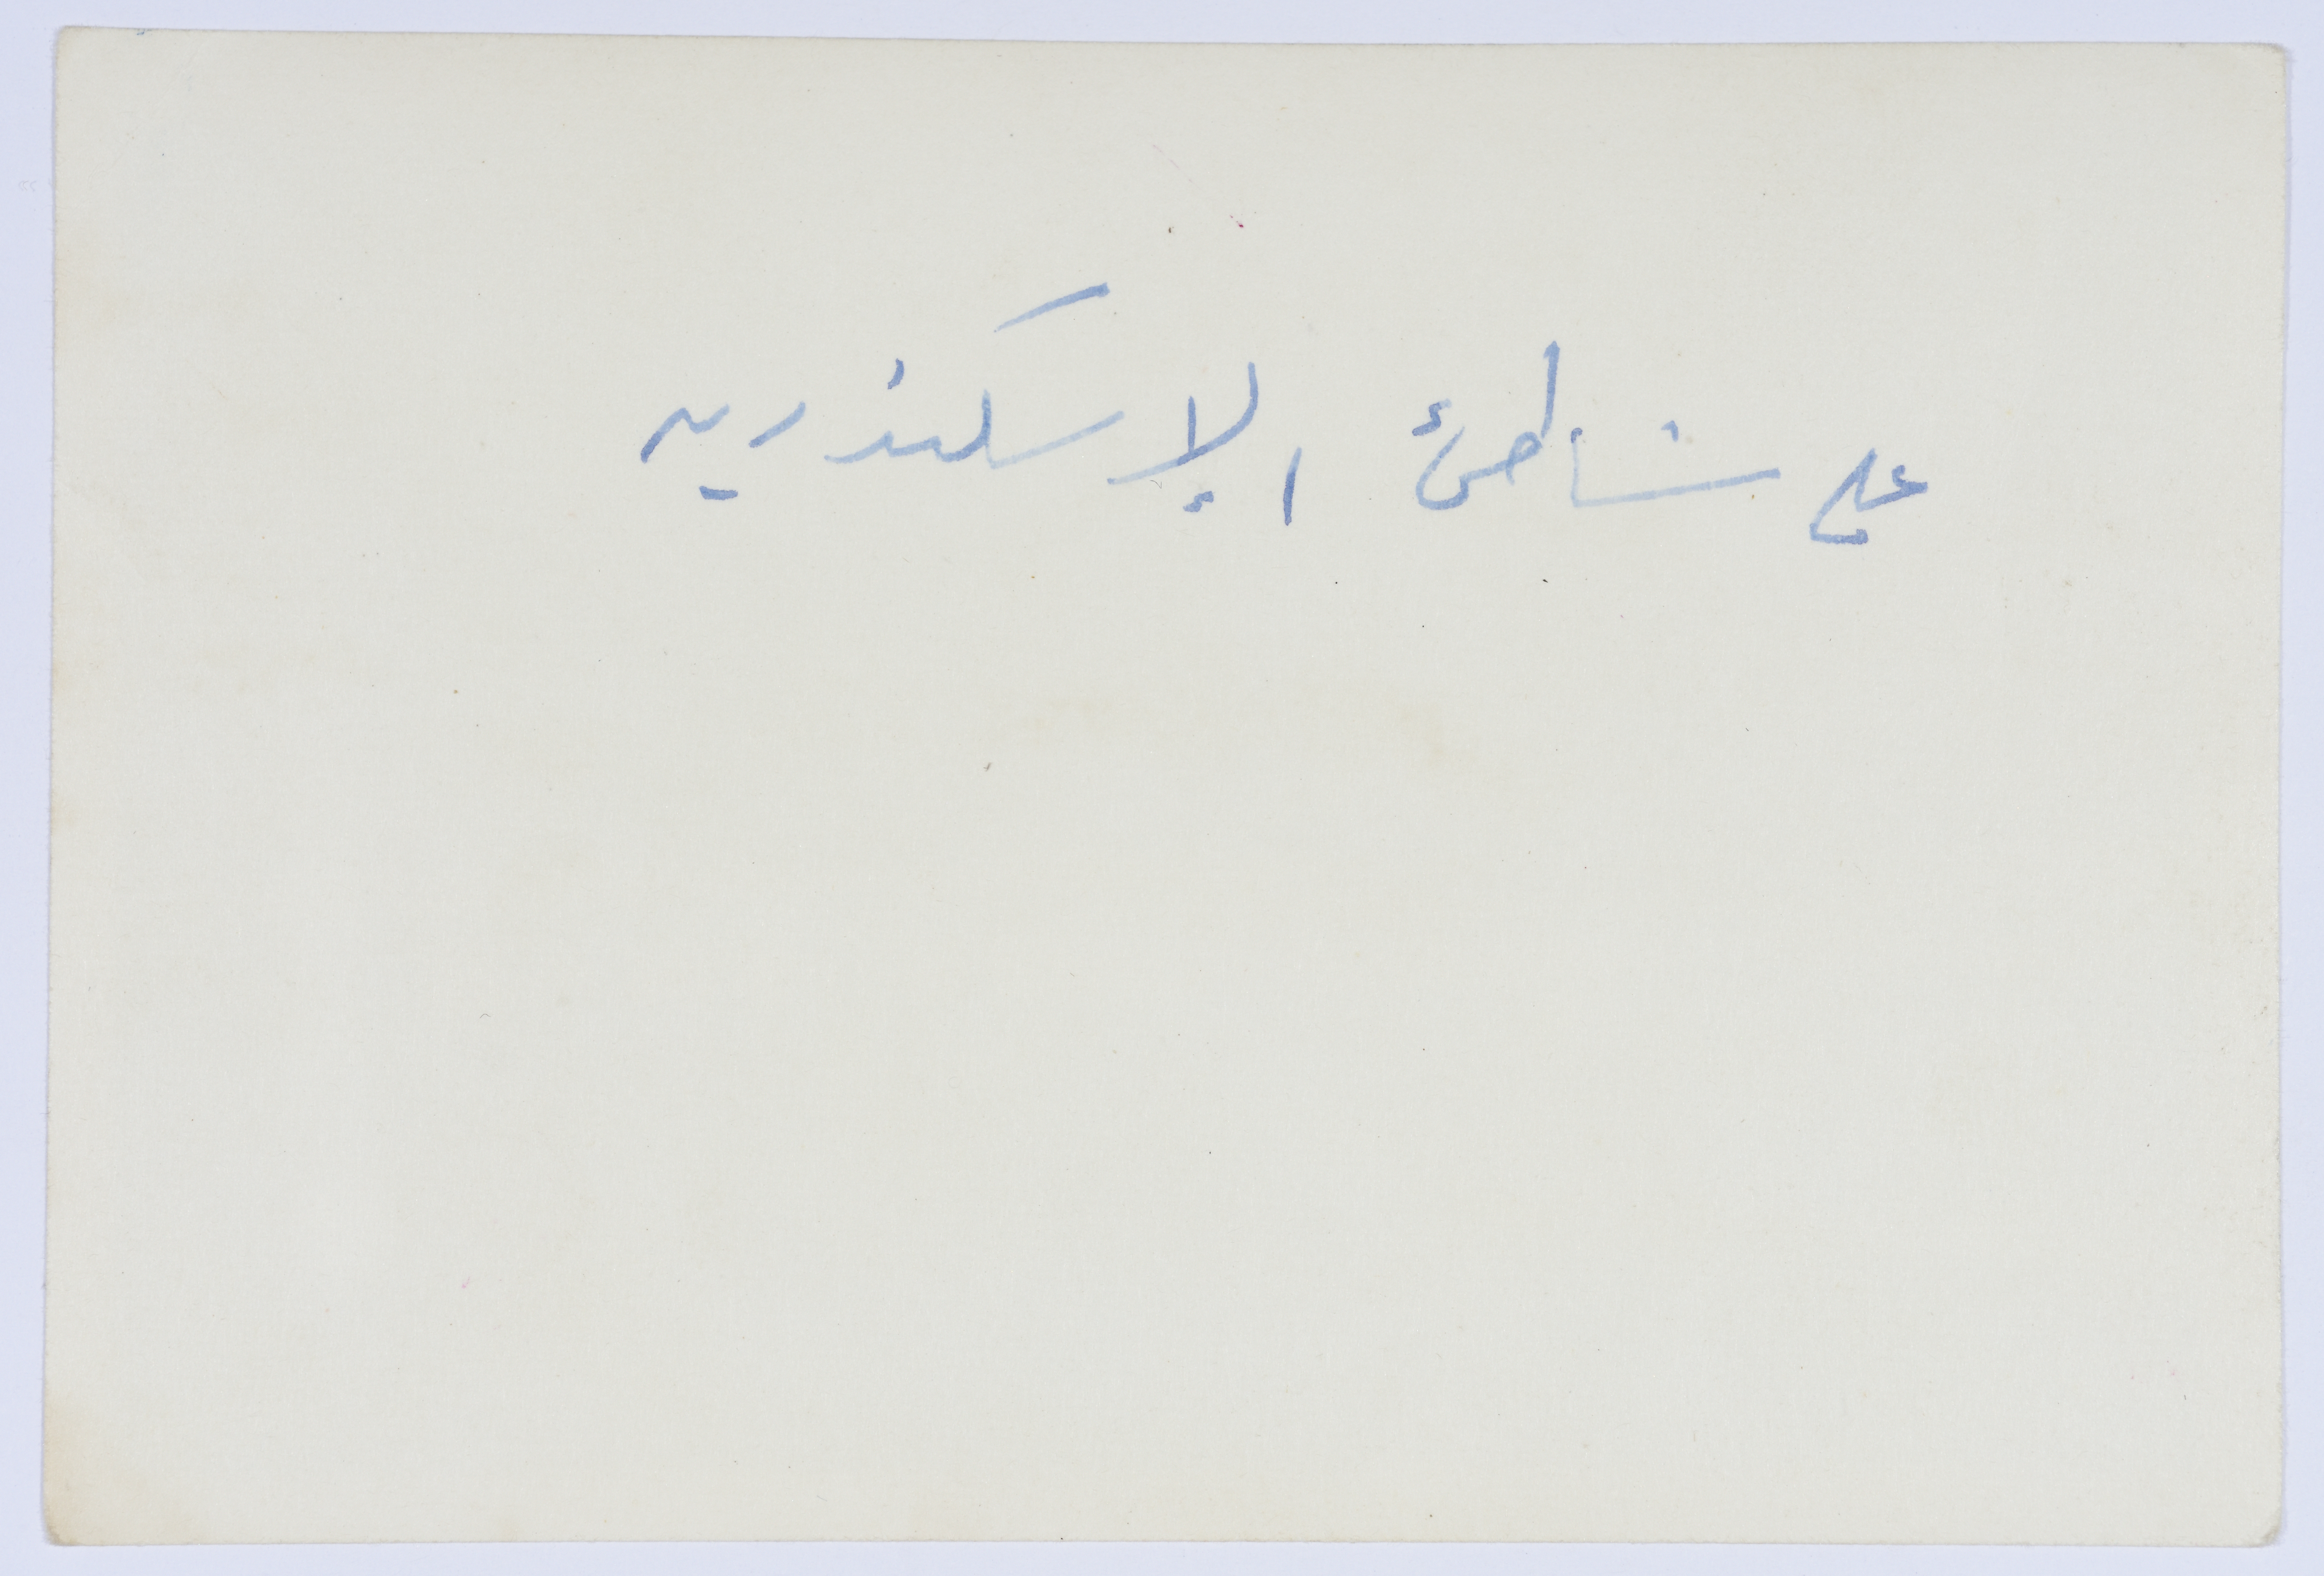 على شاطئ الإسكندريه